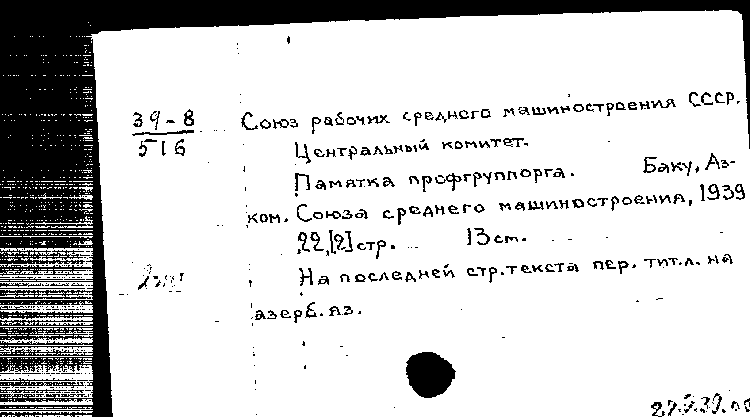 39-8
516
Союз рабочих среднего машиностроения СССР.
Центральный комитет.
Памятка профгруппорга. Баку, Аз-
ком. Союза среднего машиностроения, 1939
22,[2] стр. 13 см.
На последней стр. текста пер. тит.л. на
азерб. яз.